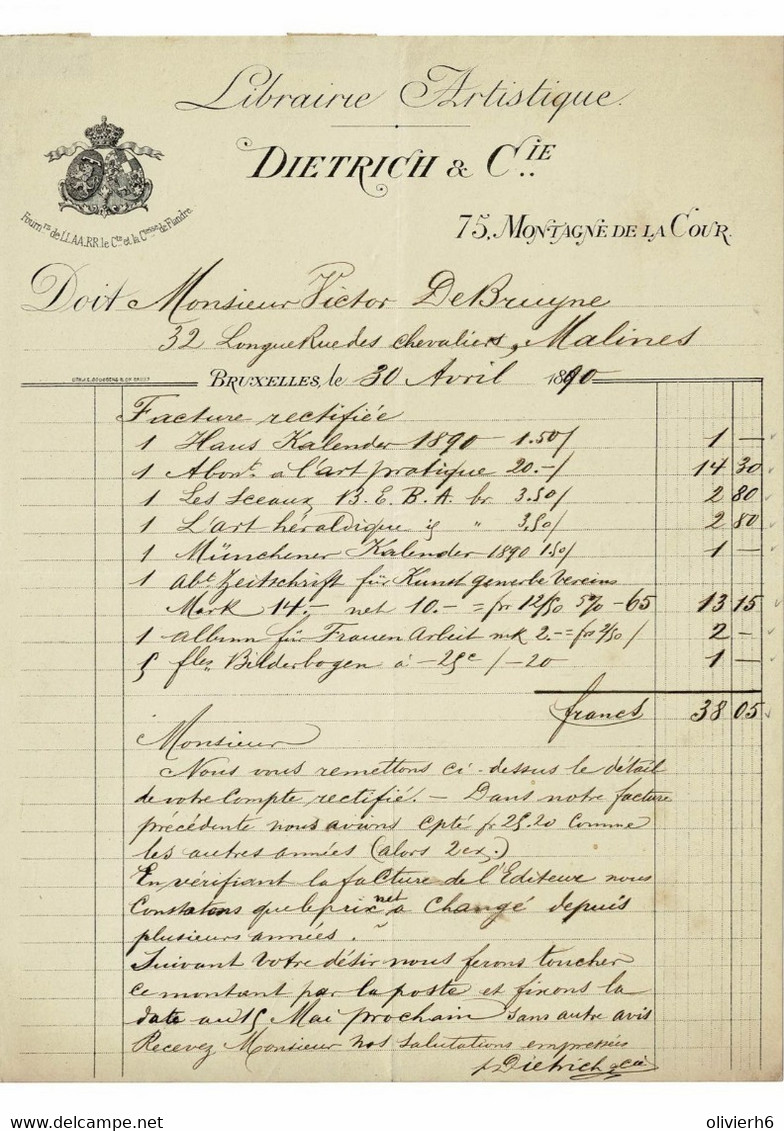 Librairie Artistique.
DIETRICH & CIE.
Fournrs de LL.AA.RR. le Cte et la Ctesse de Flandre.
75, MONTAGNE DE LA COUR.
Doit Monsieur Victor DeBruyne
32 Longue Rue des chevaliers, Malines
BRUXELLES, le 30 Avril 1890
Facture rectifiée
1 Haus Kalender 1890 1.50/ 1 —
1 Abont à l'art pratique 20.-/ 14 30
1 Les Sceaux, B.E.B.A. br 3.50/ 2 80
1 L'art héraldique id " 3.50/ 2 80
1 Münchener Kalender 1890 1.50/ 1 —
1 abt Zeitschrift für Kunst gewerbe Vereins
Mark 14.- net 10.- = fr 12/50 5% - 65 13 15
1 album für Frauen Arbeit mk 2.- = frs 2/50 / 2 -
5 flles Bilderbogen à -25c / -20 1 —
francs 38 05
Monsieur
Nous vous remettons ci-dessus le détail
de votre Compte rectifié. - Dans notre facture
précédente nous avions cpté fr 25.20 comme
les autres années (alors 2 ex.)
En vérifiant la facture de l'Editeur nous
Constatons que le prix net a changé depuis
plusieurs années.
Suivant votre désir nous ferons toucher
ce montant par la poste et fixons la
date au 15 Mai prochain sans autre avis
Recevez Monsieur nos salutations empressées
p Dietrich & Cie
delcampe.net
olivierh6